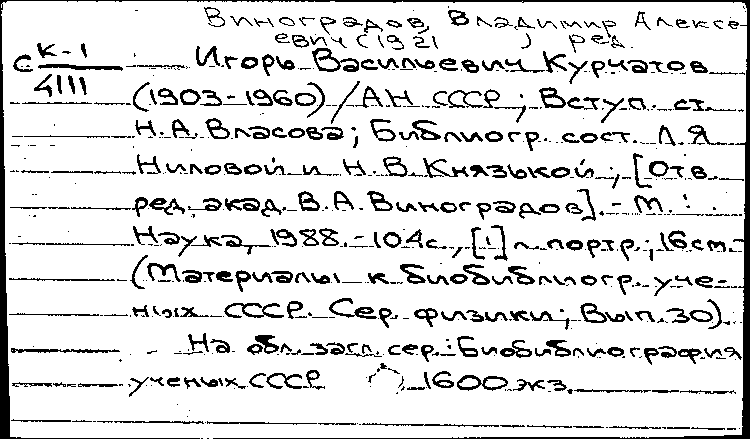 Виноградов, Владимир Алексе-
евич (1921 ) ред.
К-1 Игорь Васильевич Курчатов
с 4111 (1903-1960) / АН СССР ; Вступ. ст.
Н.А. Власова ; Библиогр. сост. Л.Я
Ниловой и Н.В. Князькой ; [Отв.
ред. акад. В.А. Виноградов]. - М. :
Наука, 1988. - 104с., [1] л. портр. ; 16см. -
(Материалы к биобиблиогр. уче-
ных СССР. Сер. физики ; Вып. 30).
На обл. загл. сер.: Биобиблиография
ученых СССР 1600 экз.